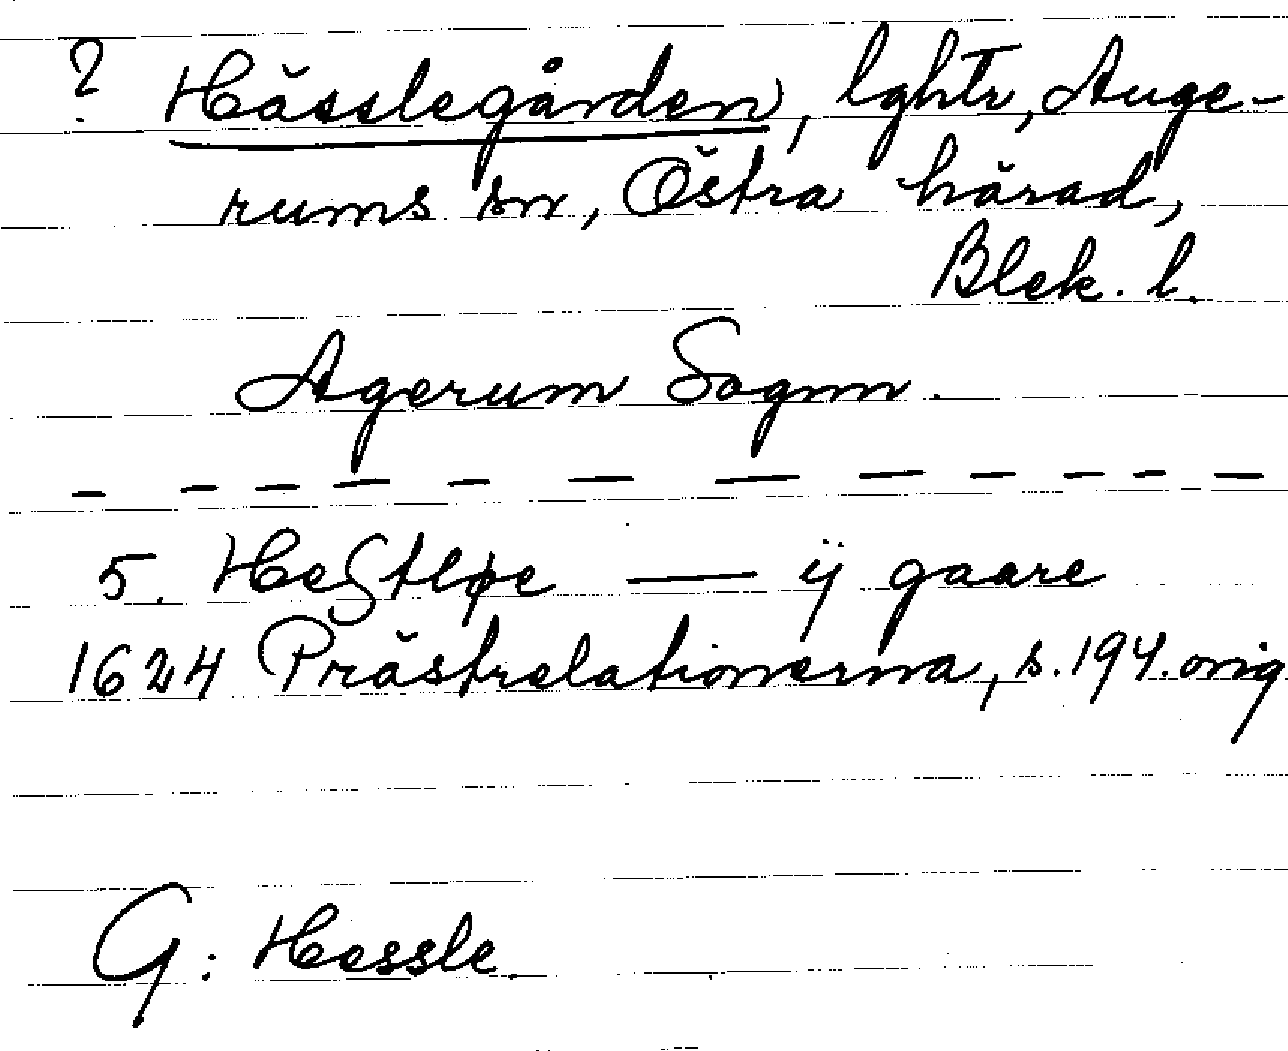 ? Hässlegården, lghtr, Auge-
rums sn, Östra härad,
Blek. l.
Agerum Sognn.
— — — — — — — — — — — —
5. Heſtløe — ij gaare
1624 Prästrelationerna, s. 194. orig
G: Hessle.